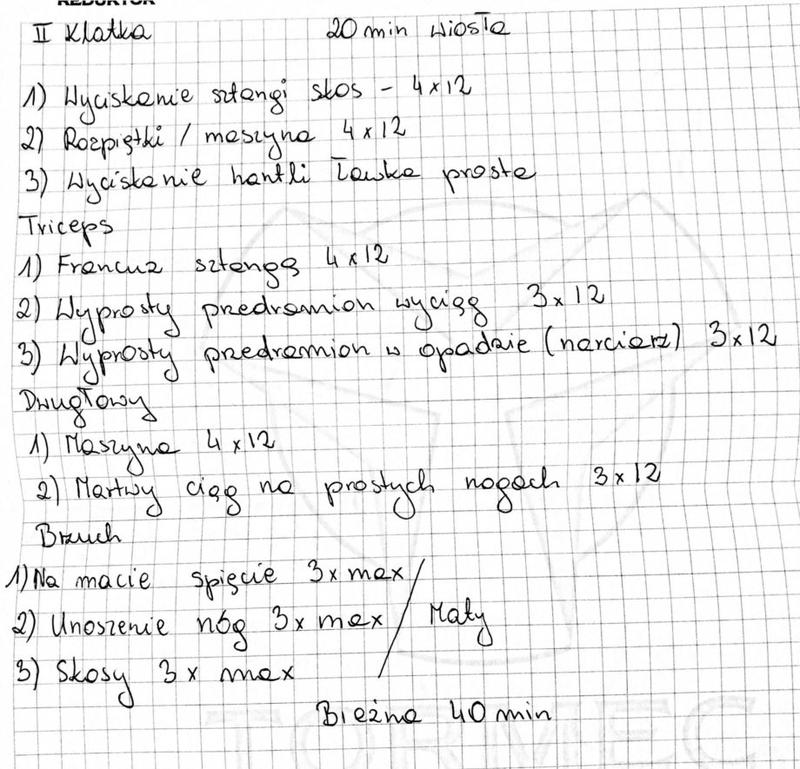 REDUKTOR
II Klatka 20 min wiosła
1) Wyciskanie sztangi skos - 4x12
2) Rozpiętki / maszyna 4x12
3) Wyciskanie hantli Ławka prosta
Triceps
1) Francuz sztangą 4x12
2) Wyprosty przedramion wyciąg 3x12
3) Wyprosty przedramion w opadzie (narciarz) 3x12
Dwugłowy
1) Maszyna 4x12
2) Martwy ciąg na prostych nogach 3x12
Brzuch
1) Na macie spięcie 3x max
2) Unoszenie nóg 3x max / Maty
3) Skosy 3x max
Bieżna 40 min